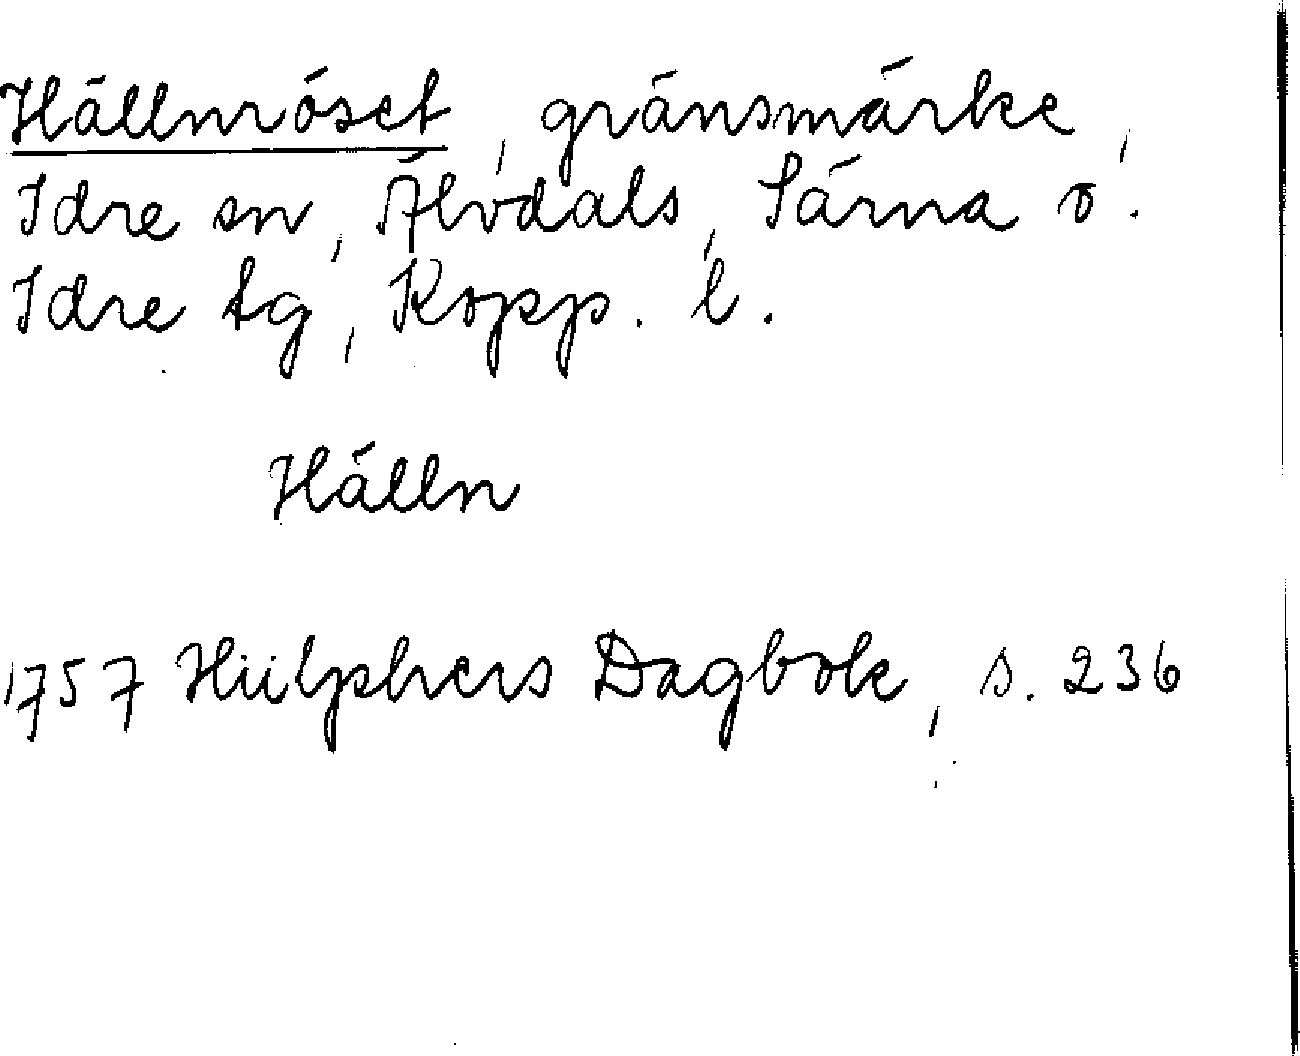 Hällnröset, gränsmärke,
Idre sn, Älvdals, Särna o.
Idre tg, Kopp. l.
Hälln
1757 Hülphers Dagbok, s. 236